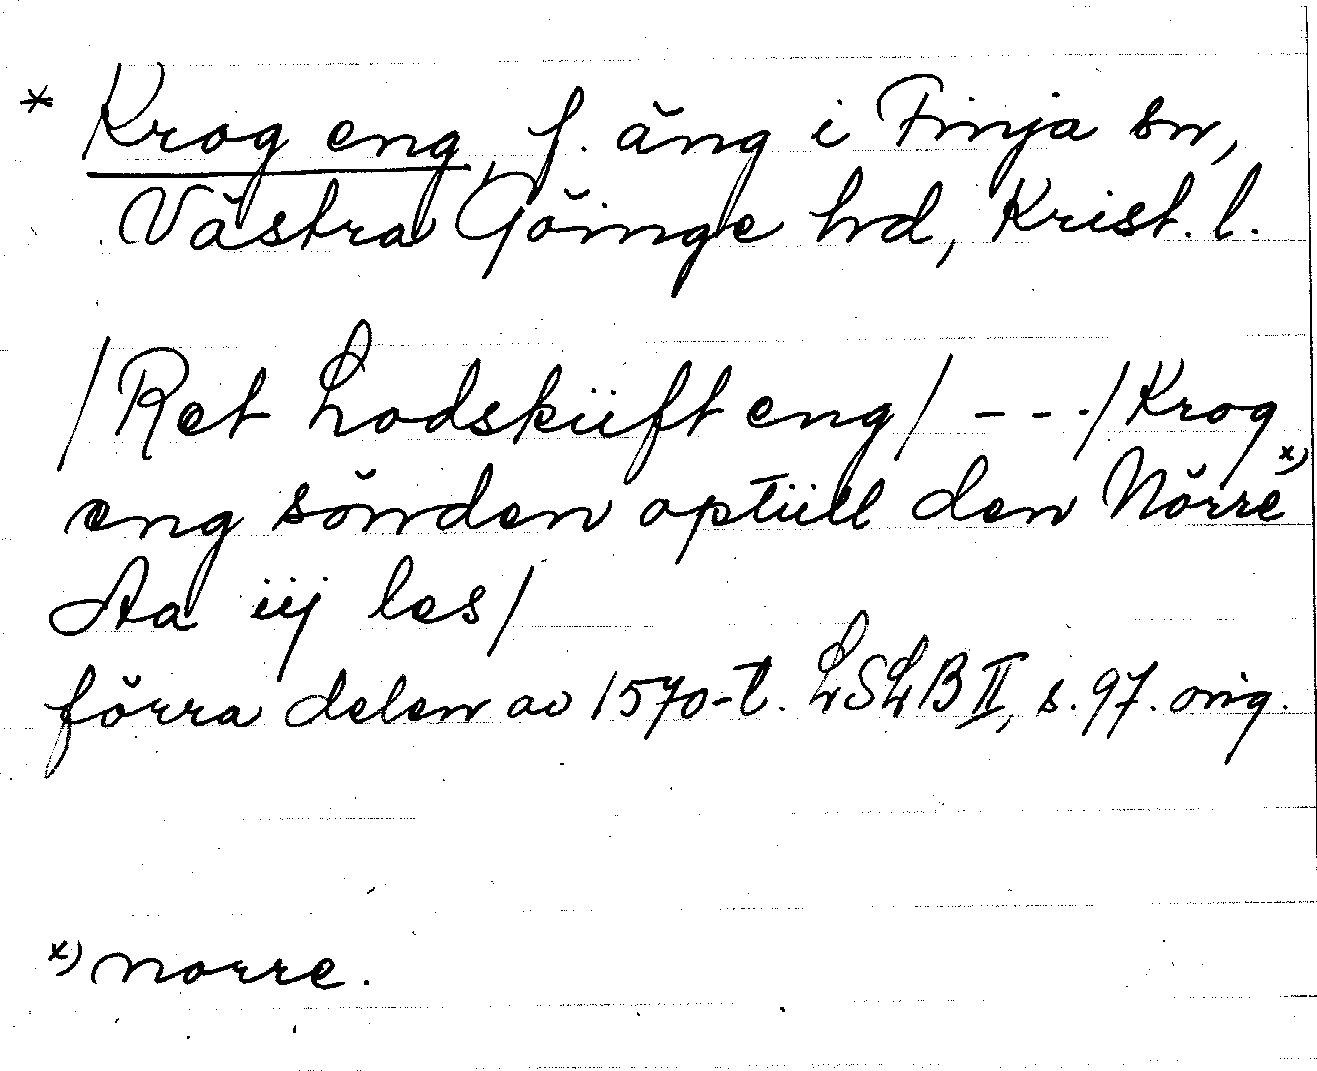 * Krog eng, f. äng i Finja sn,
Västra Göinge hd, Krist. l.
/Ret Lodskiift eng/ - - - /Krog
eng sönden optiill den Nörre x)
Aa iij les/
förra delen av 1570-t. LSLB II, s. 97. orig.
x) norre.